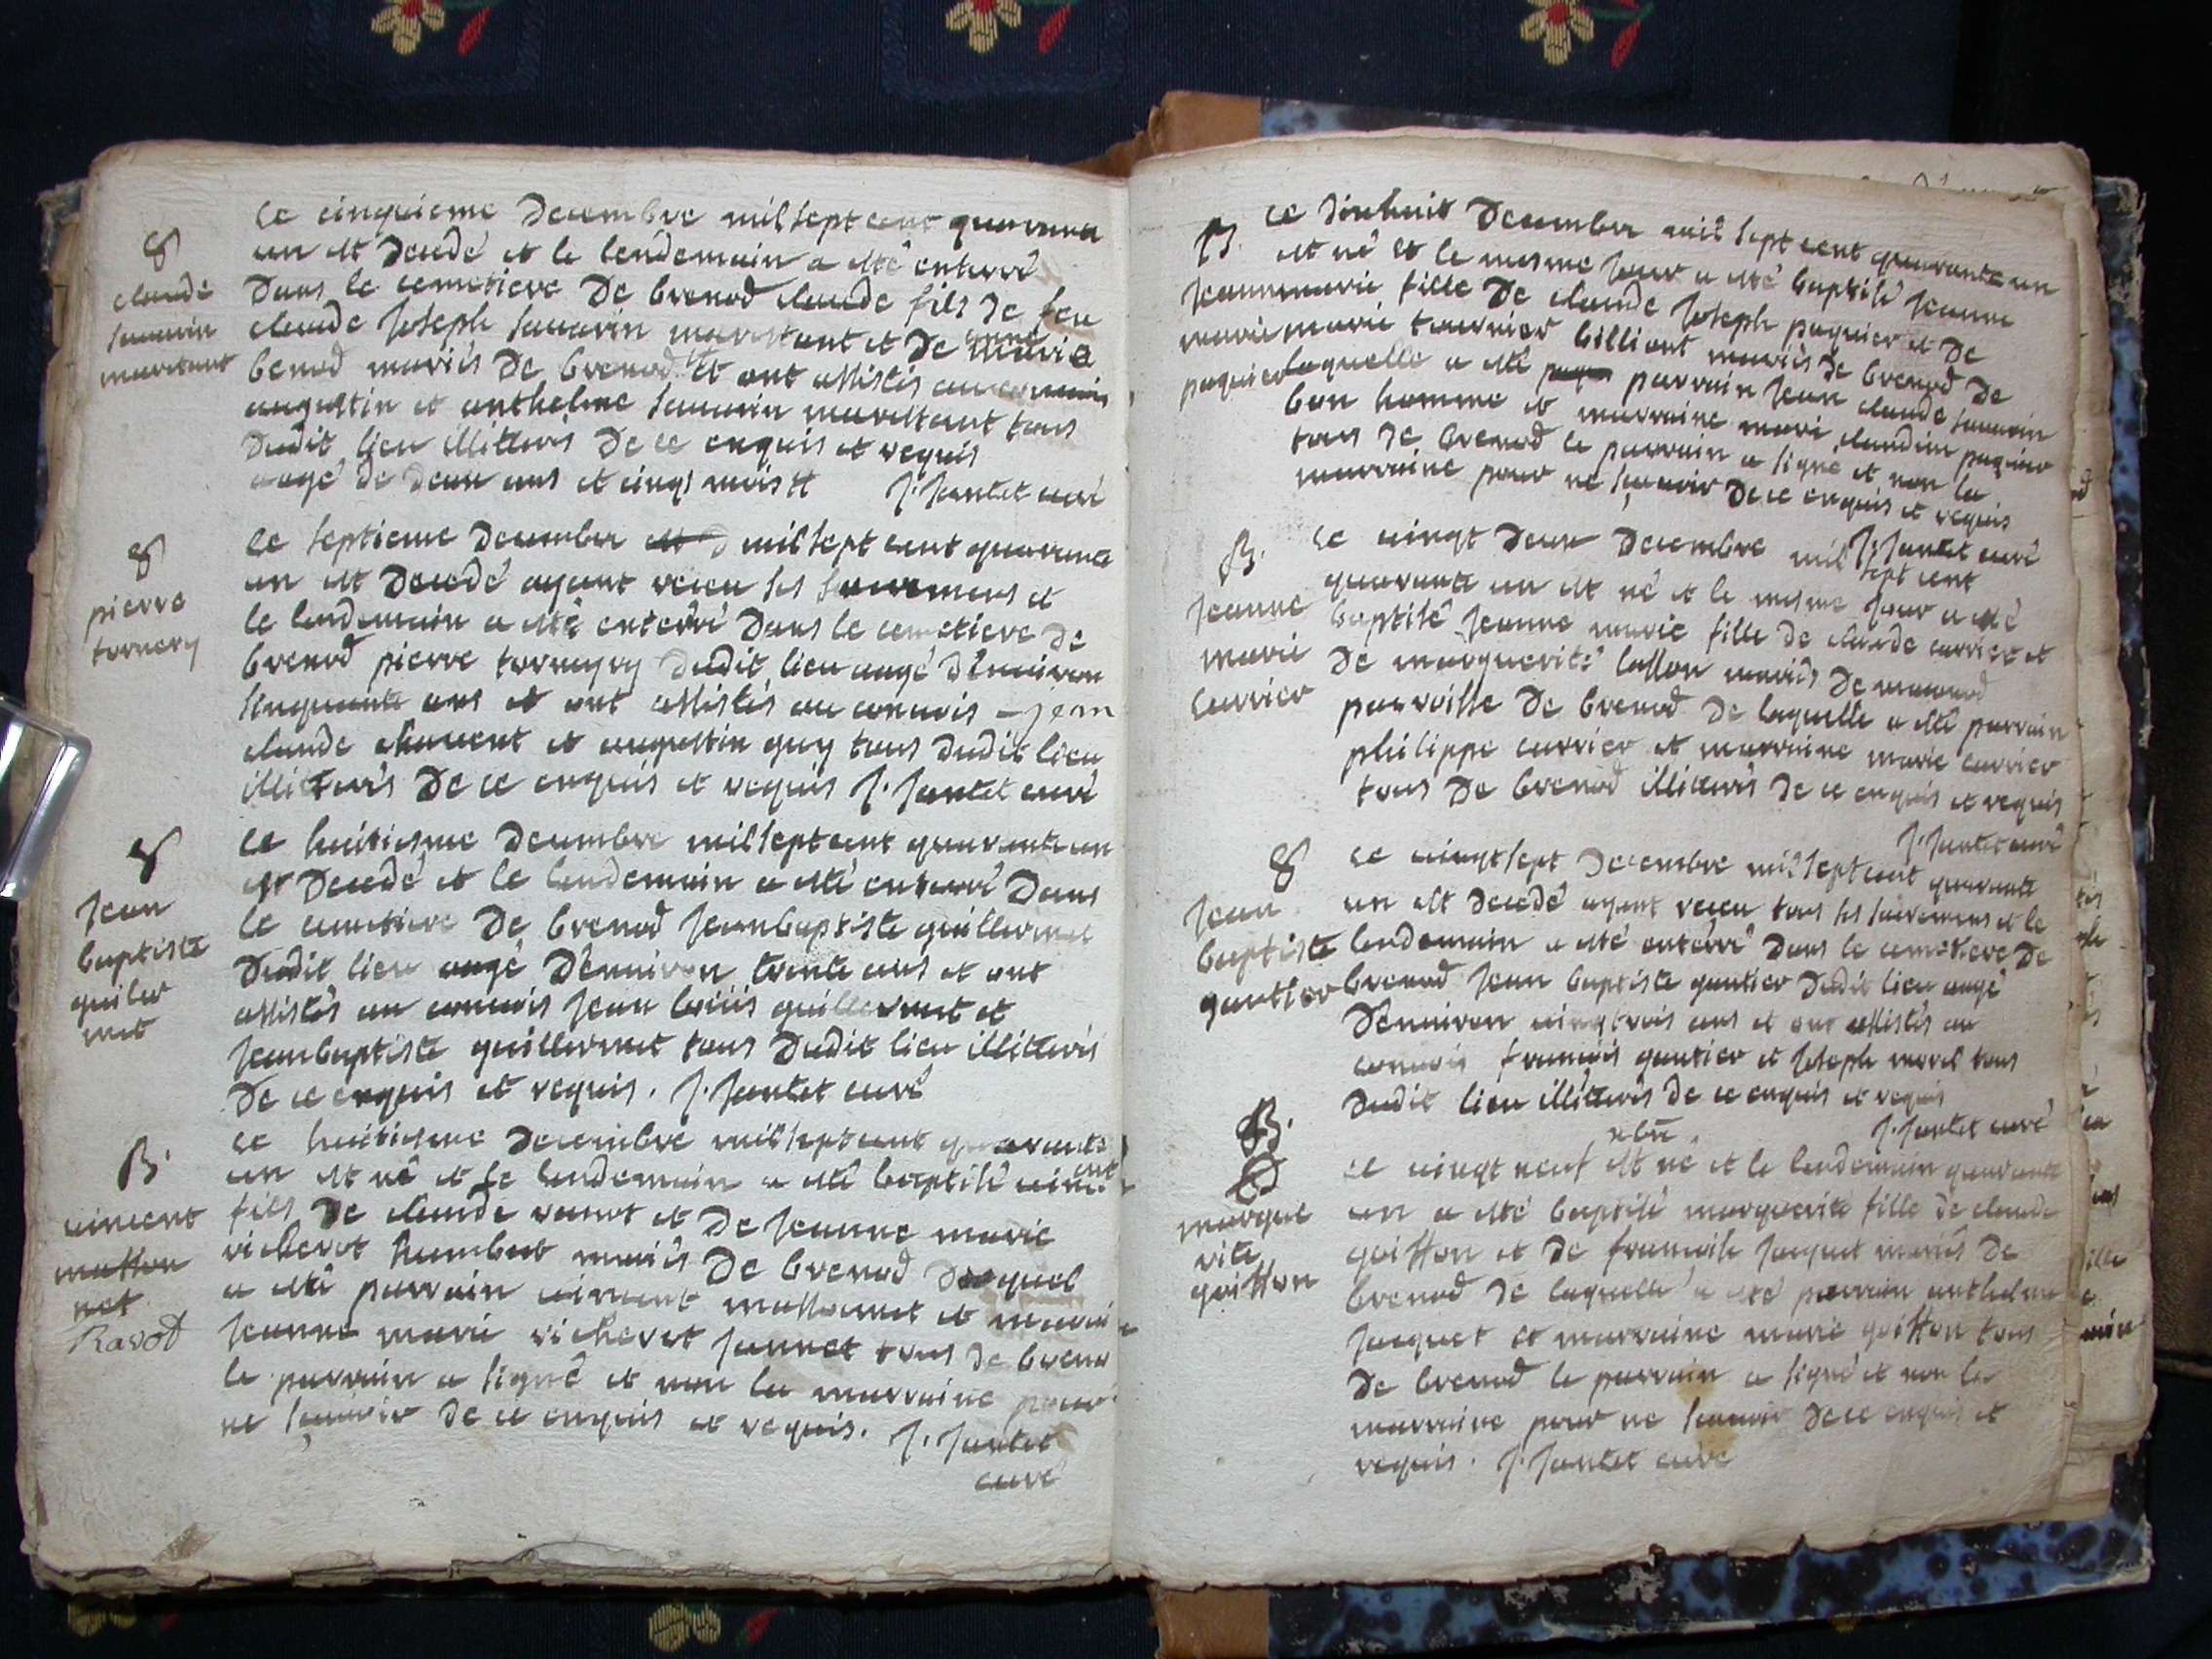 8
claude
sauarin
marestant
Le cinquieme Decembre mil sept cent quarente
un est Decedé et le lendemain a esté enterré
Dans le cemetiere De brenod claude fils De feu
claude Joseph sauarin marestant et De marie
benod mariés De brenod et ont assistés au conuois
augustin et anthelme sauarin marestant tous
Dudit lieu illitterés De ce enquis et requis
aagé De Deux ans et cinq mois J. Jantet curé
8
pierre
tornery
Le septieme Decembre mil sept cent quarente
un est Decedé ayant receu ses sacremens et
le lendemain a esté enterré Dans le cemetiere De
brenod pierre tornayry Dudit lieu aagé D'enuiron
sinquante ans et ont assistés au conuois jean
claude chauent et augustin guy tous Dudit lieu
illitterés De ce enquis et requis J. Jantet curé
8
Jean
baptiste
guiler
met
Le huitiesme Decembre mil sept cent quarante un
est Decedé et le lendemain a esté enterré Dans
le cemetiere De brenod Jean baptiste guillermet
Dudit lieu aagé D'enuiron trente ans et ont
assistés au conuois Jean louis guillermet et
Jean baptiste guillermet tous Dudit lieu illitterés
De ce enquis et requis. J. Jantet curé
B.
uincent
masson
net
Ravot
Le huitiesme Decembre mil sept cent quarante
un est né et le lendemain a esté baptisé uincent
fils De claude rauot et De Jeanne marie
richerot humbert mariés De brenod Duquel
a esté parrain uincent massonnet et marraine
Jeanne marie richerot Jannet tous De brenod
le parrain a signé et non la marraine pour
ne sçauoir De ce enquis et requis. J. Jantet
curé
B.
Jeanne
marie
paquier
Le Dixhuit Decembre mil sept cent quarante un
est né et le mesme Jour a esté baptisé Jeanne
marie fille De claude Joseph paquier et De
marie tournier billiont mariés De brenod De
laquelle a esté parrain Jean claude sauarin
bon homme et marraine marie claudine paquier
tous De brenod le parrain a signé et non la
marraine pour ne sçauoir De ce enquis et requis
J. Jantet curé
B.
Jeanne
marie
carrier
Le uingt Deux Decembre mil sept cent
quarante un est né et le mesme Jour a esté
baptisé Jeanne marie fille De claude carrier et
De marguerite lasson mariés De
parroisse De brenod De laquelle a esté parrain
philippe carrier et marraine marie carrier
tous De brenod illitterés De ce enquis et requis
J. Jantet curé
8
Jean
baptiste
gautier
Le uingt sept Decembre mil sept cent quarante
un est Decedé ayant receu tous ses sacremens et le
lendemain a esté enterré Dans le cemetiere De
brenod Jean baptiste gautier Dudit lieu aagé
D'enuiron uingtrois ans et ont assistés au
conuois francois gautier et Joseph morel tous
Dudit lieu illitterés De ce enquis et requis
J. Jantet curé
B.
margue
rite
goisson
xbre
Le uingt neuf est né et le lendemain quarante
un a esté baptisé marguerite fille De claude
goisson et De francoise Jacquet mariés De
brenod De laquelle a esté parrain anthelme
Jacquet et marraine marie goisson tous
De brenod le parrain a signé et non la
marraine pour ne sçauoir De ce enquis et
requis. J. Jantet curé